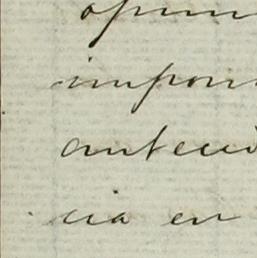 opin
impon
antece
cia en